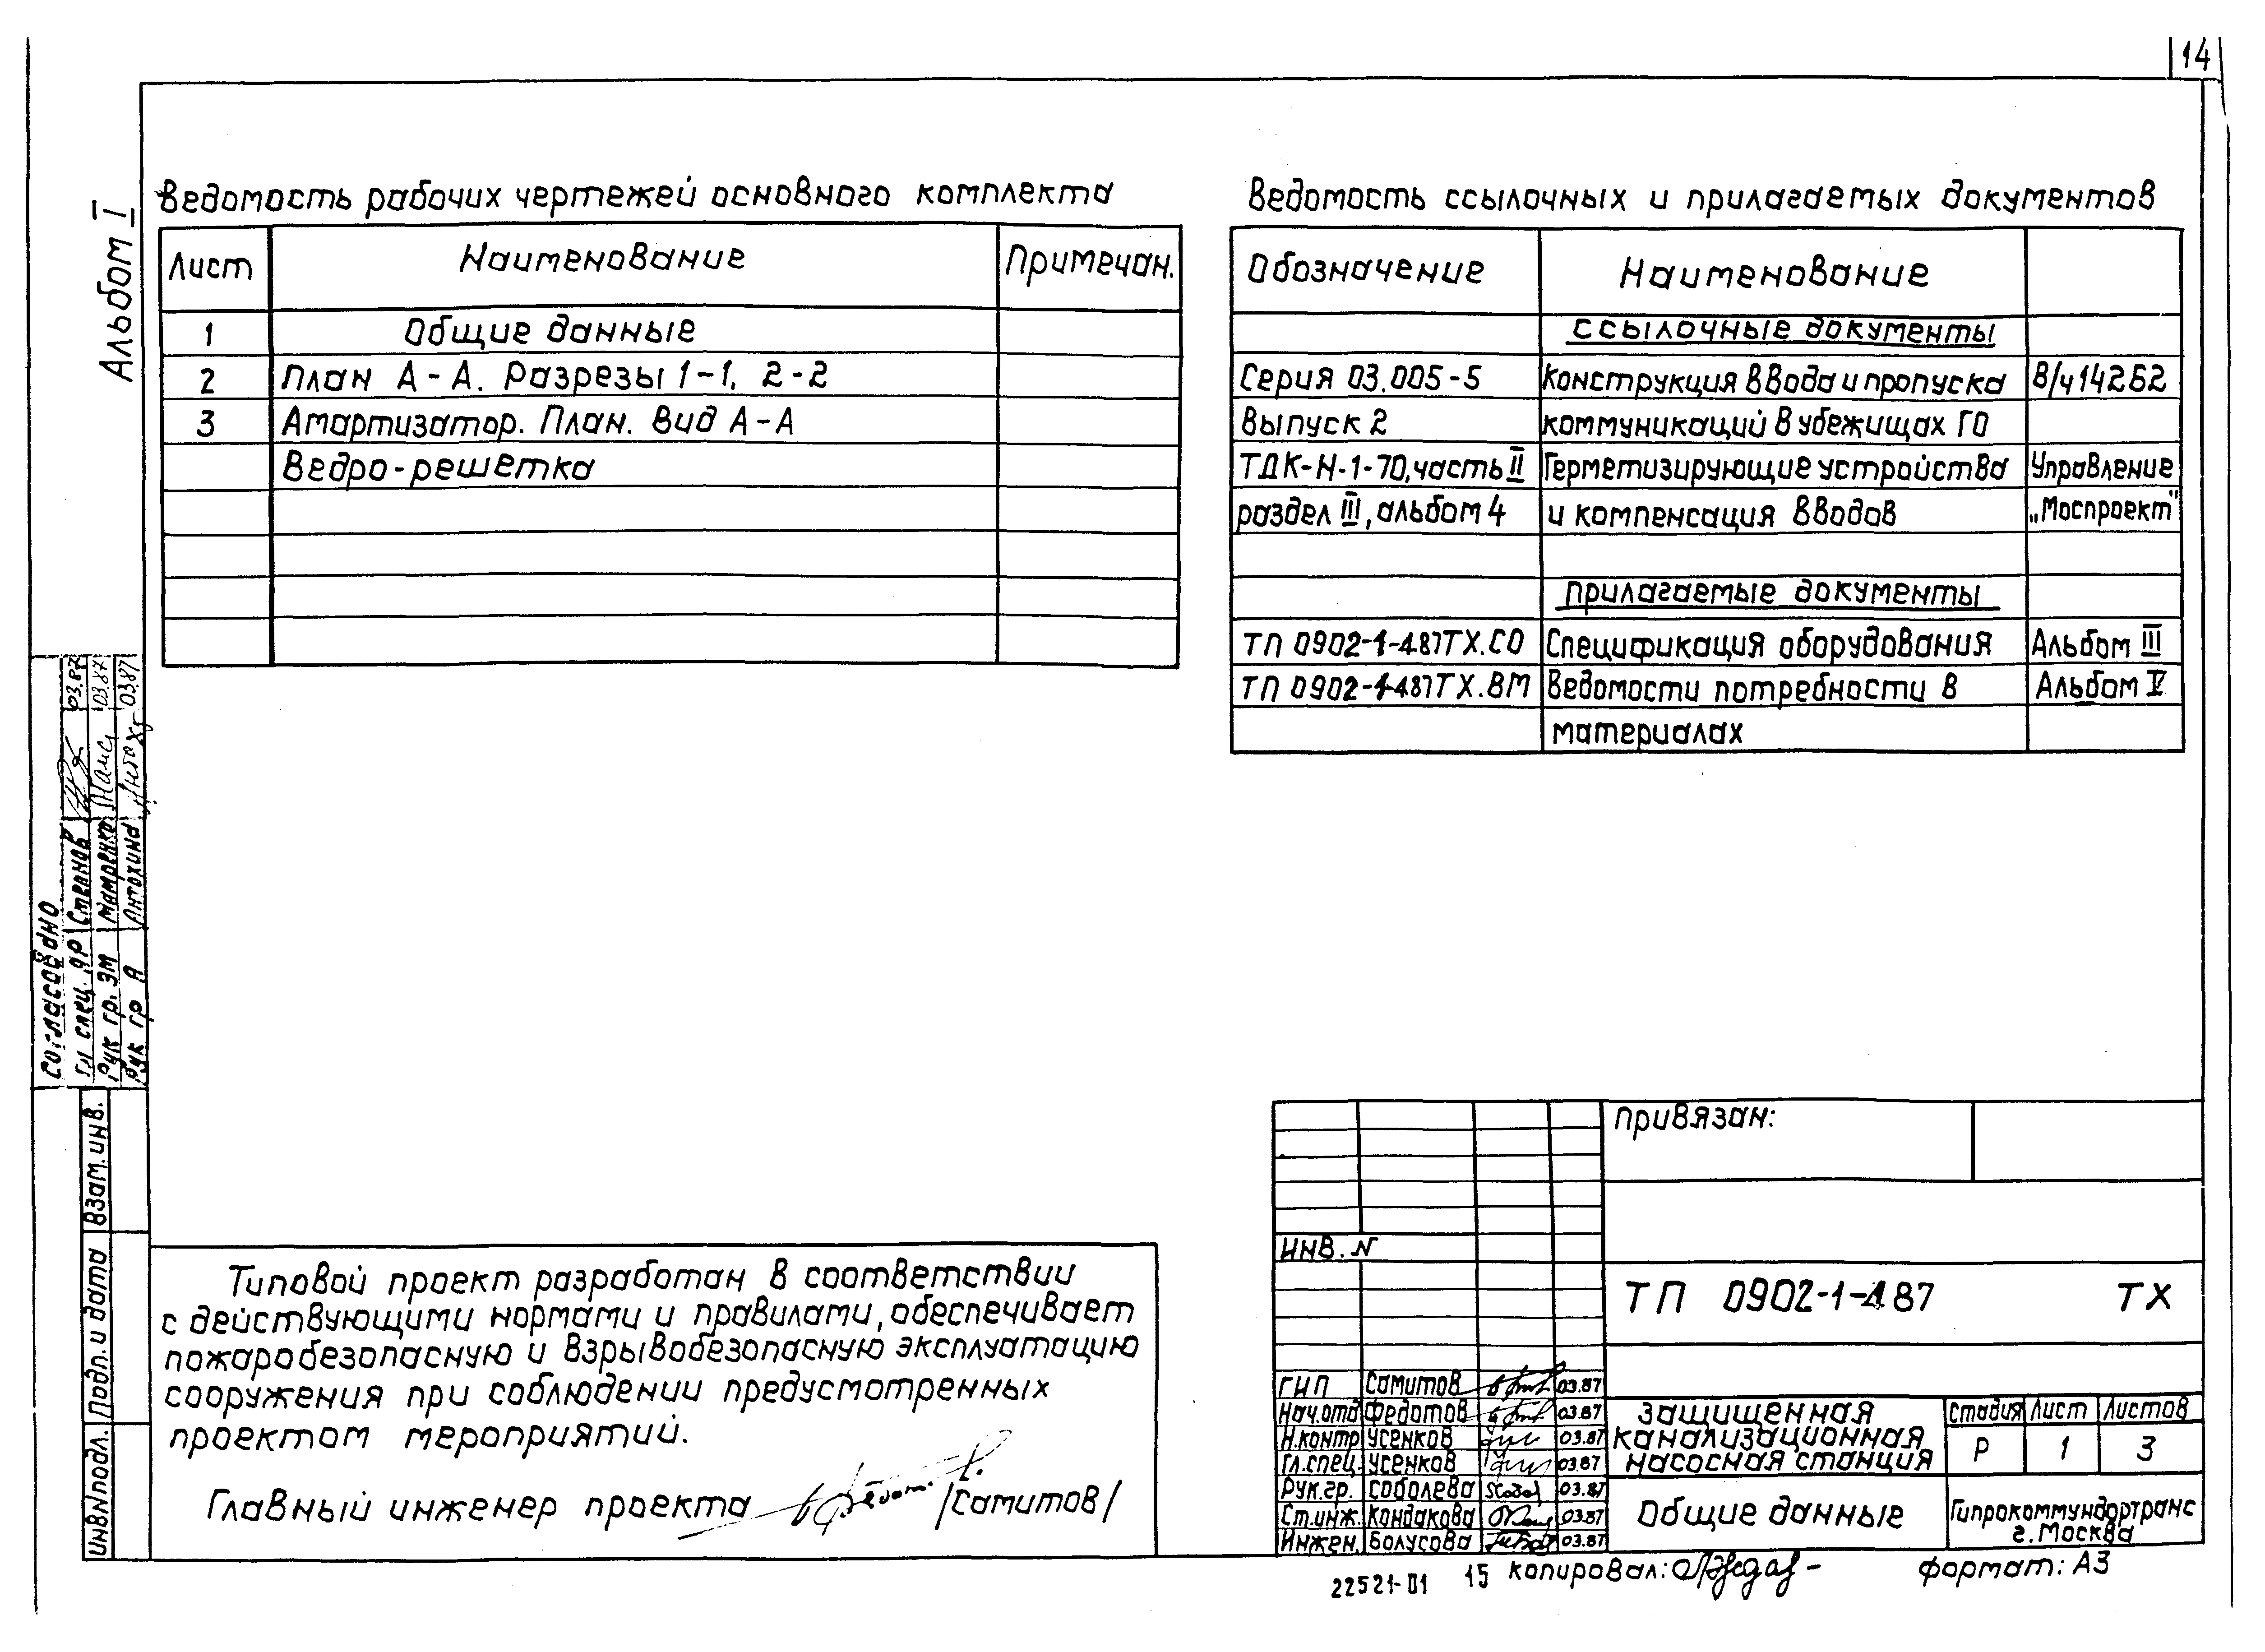 14
Альбом I
Ведомость рабочих чертежей основного комплекта
Лист Наименование Примечан.
1 Общие данные
2 План А-А. Разрезы 1-1, 2-2
3 Амартизатор. План. Вид А-А
Ведро-решетка
Ведомость ссылочных и прилагаемых документов
Обозначение Наименование
ссылочные документы
Серия 03.005-5 Конструкция ввода и пропуска В/ч 14262
Выпуск 2 коммуникаций в убежищах ГО
ТДК-Н-1-70, часть II Герметизирующие устройства Управление
раздел III, альбом 4 и компенсация вводов „Моспроект"
прилагаемые документы
ТП 0902-1-487ТХ.СО Спецификация оборудования Альбом III
ТП 0902-1-487ТХ.ВМ Ведомости потребности в Альбом V
материалах
Согласовано
Гл спец. АР Степанов 03.87
Рук гр. ЭМ 03.87
Рук гр А Антохина 03.87
Взам. инв.
Подп. и дата
инв№подл.
Типовой проект разработан в соответствии
с действующими нормами и правилами, обеспечивает
пожаробезопасную и взрывобезопасную эксплуатацию
сооружения при соблюдении предусмотренных
проектом мероприятий.
Главный инженер проекта /Самитов/
привязан:
инв. N
ТП 0902-1-487 ТХ
ГИП Самитов 03.87
Нач.отд Федотов 03.87
Н.контр Усенков 03.87
Гл.спец. Усенков 03.87
Рук.гр. Соболева 03.87
Ст.инж. Кондакова 03.87
Инжен. Болусова 03.87
защищенная
канализационная
насосная станция
стадия Лист Листов
Р 1 3
Общие данные
Гипрокоммундортранс
г. Москва
22521-01 15 копировал: формат: А3